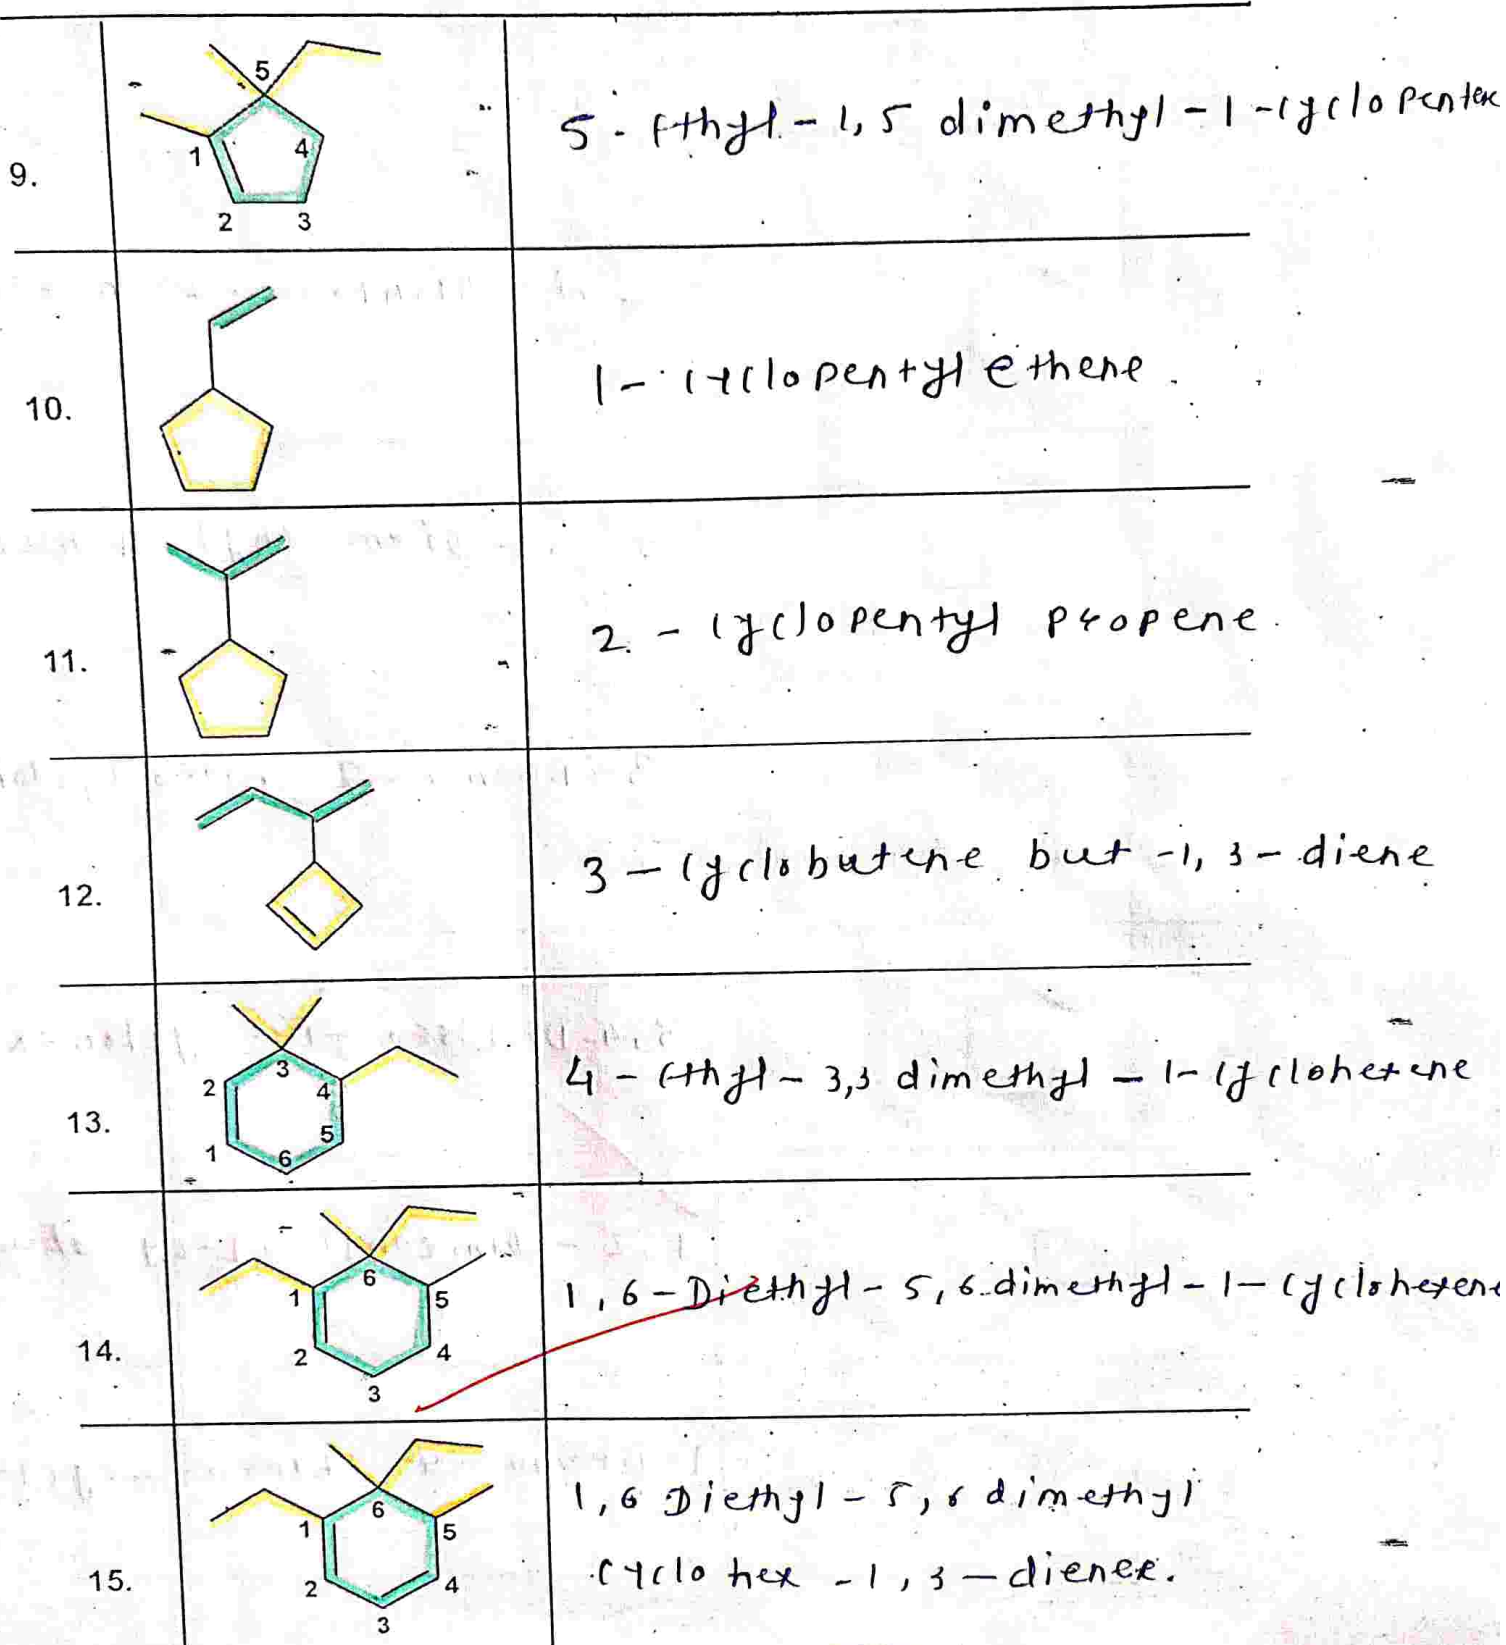 9.
5
1
4
2
3
5 - Ethyl - 1, 5 dimethyl - 1 - cyclopenten
10.
1 - cyclopentyl ethene.
11.
2 - cyclopentyl propene.
12.
3 - cyclobutene but - 1, 3 - diene
13.
3
2
4
5
1
6
4 - Ethyl - 3,3 dimethyl - 1 - cyclohexene
14.
6
1
5
2
4
3
1, 6 - Diethyl - 5, 6 dimethyl - 1 - cyclohexene
15.
6
1
5
2
4
3
1, 6 Diethyl - 5, 6 dimethyl
cyclo hex - 1, 3 - diene.